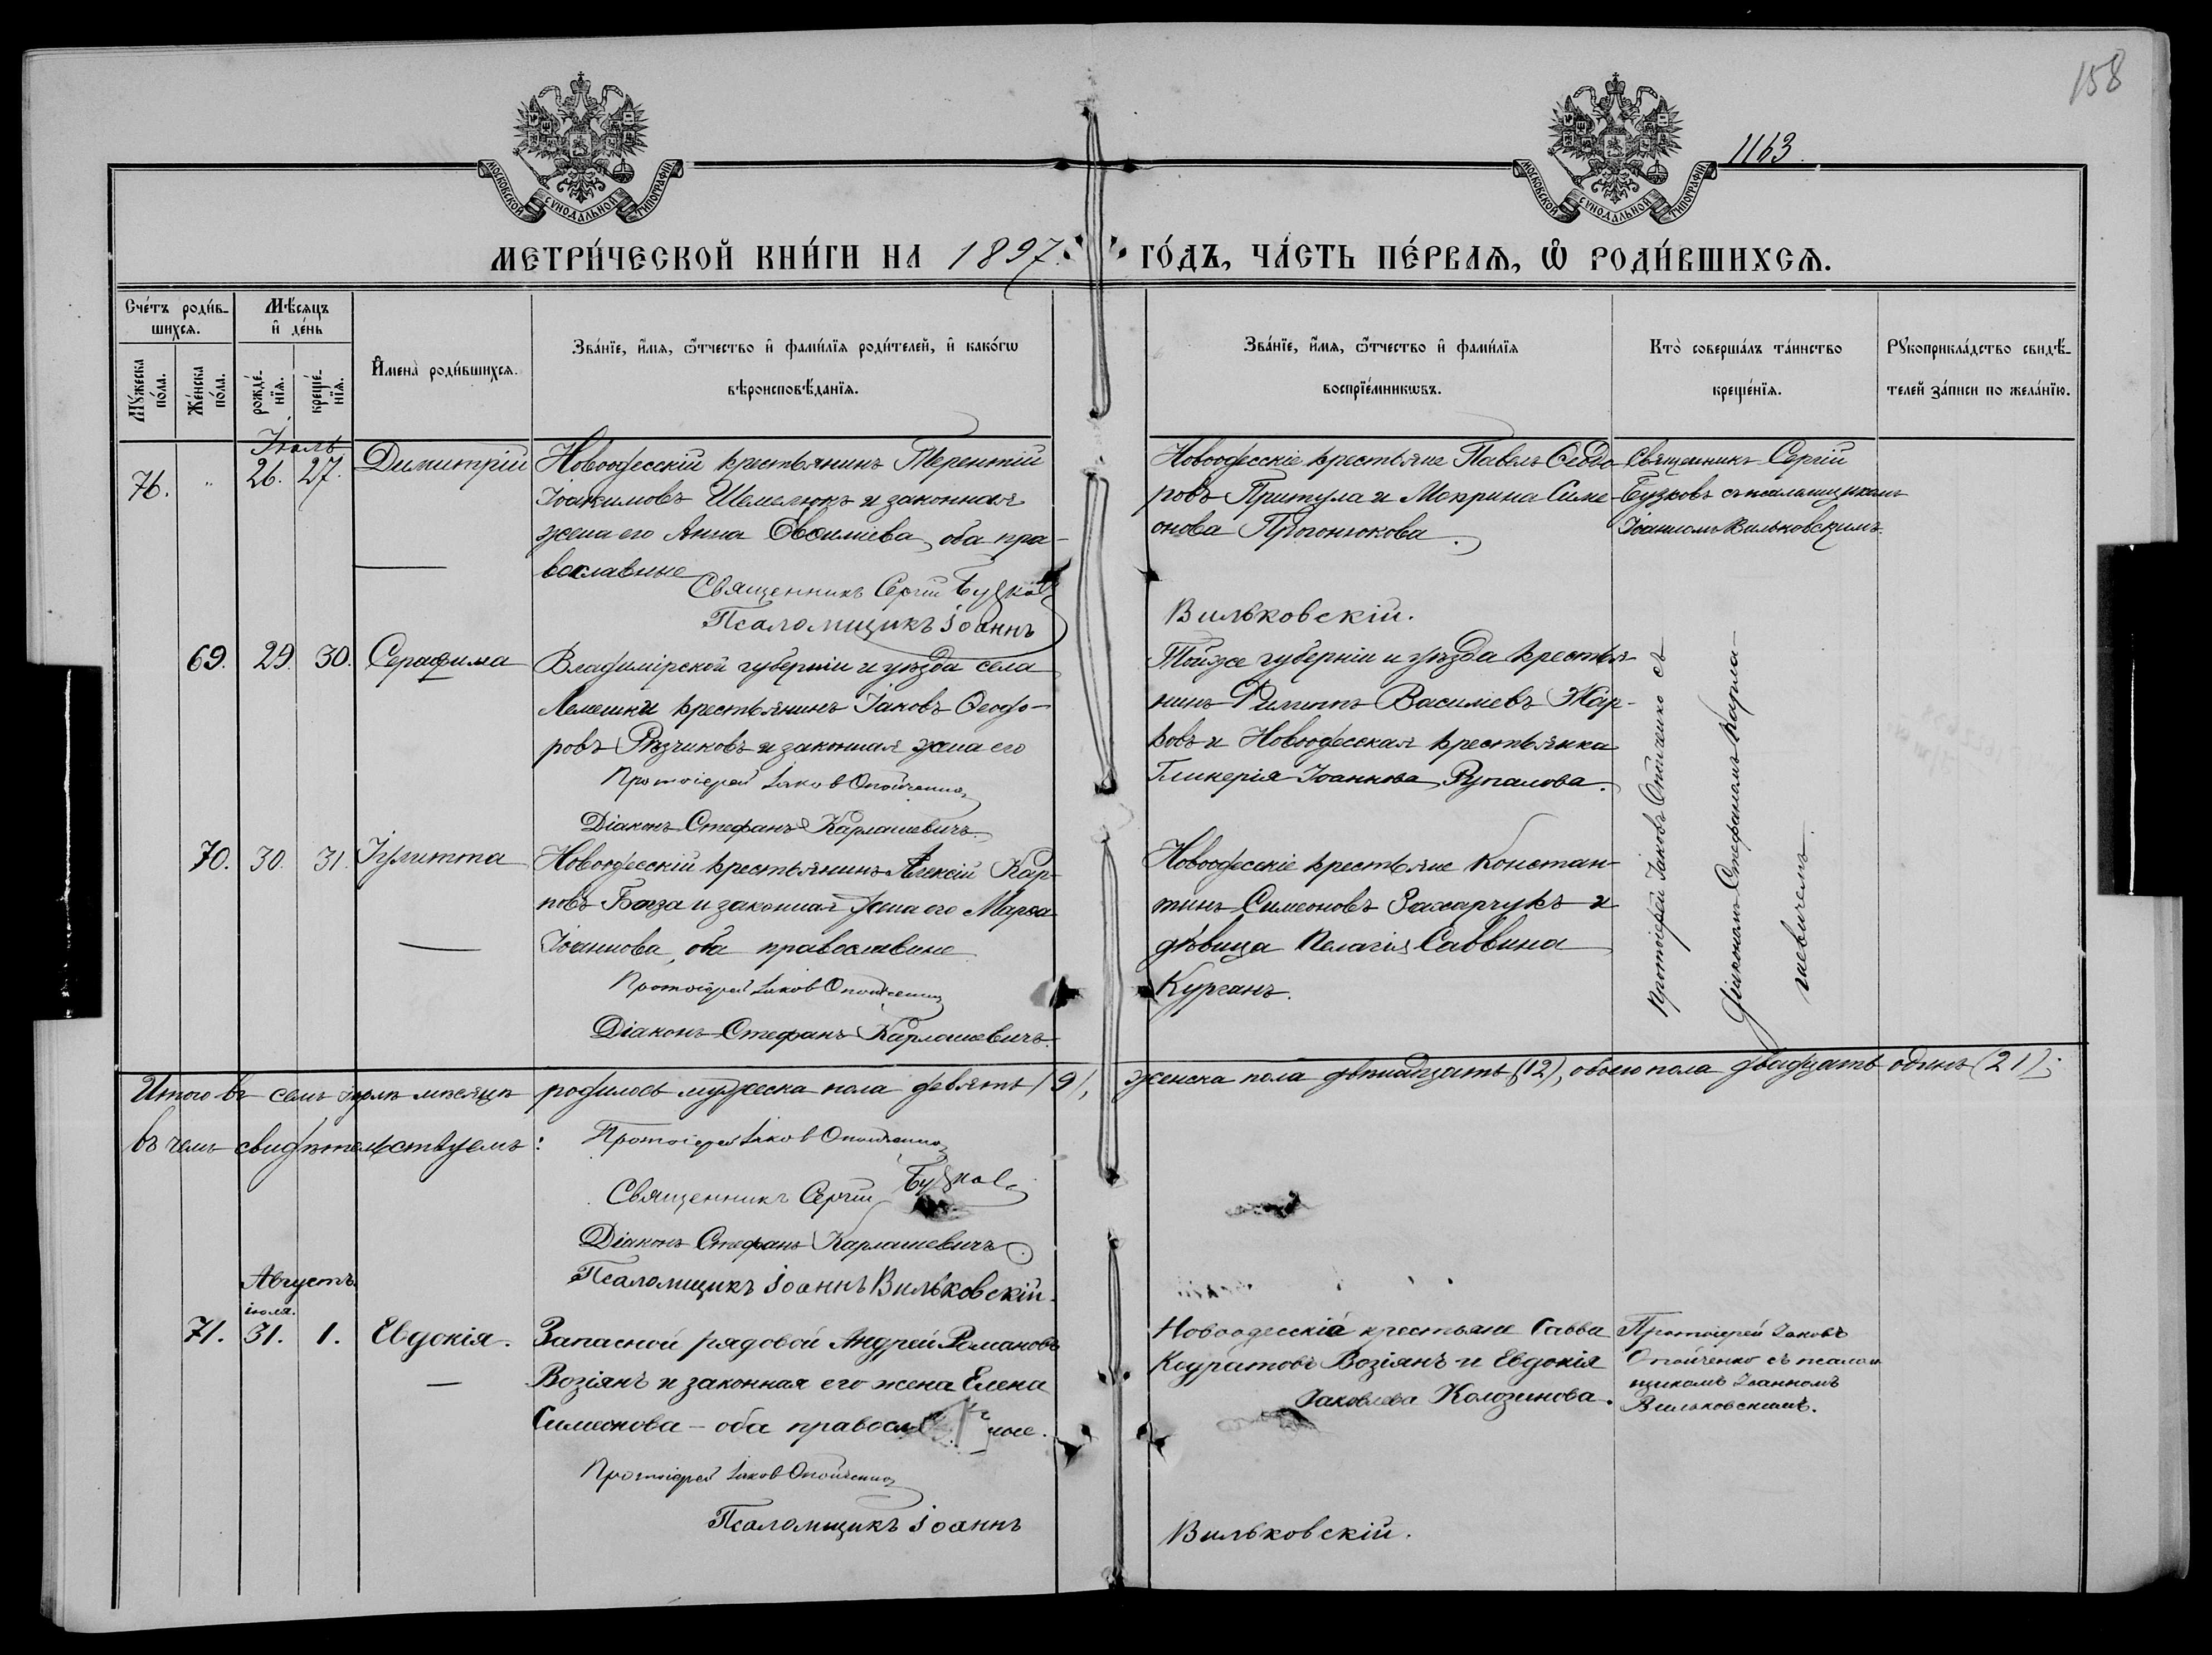 158
1163.
МОСКОВСКОЙ СѴНОДАЛЬНОЙ ТИПОГРАФІИ
МОСКОВСКОЙ СѴНОДАЛЬНОЙ ТИПОГРАФІИ
МЕТРИ́ЧЕСКОЙ КНИ́ГИ НА 1897 ГО́ДЪ, ЧА́СТЬ ПЕ́РВАѦ, Ѡ҆ РОДИ́ВШИХСѦ.
Сче́тъ роди́в-
шихсѧ.
Мѣ́сѧцъ
и҆ де́нь
Мꙋ́жеска
по́ла.
Же́нска
по́ла.
рожде́-
нїѧ.
креще́-
нїѧ.
И҆мена̀ роди́вшихсѧ.
Зва́нїе, и҆́мѧ, ѻ҆́тчество и҆ фами́лїѧ роди́телей, и҆ како́гѡ
вѣроисповѣ́данїѧ.
Зва́нїе, и҆́мѧ, ѻ҆́тчество и҆ фами́лїѧ
воспрїе́мникѡвъ.
Кто̀ соверша́лъ та́инство
креще́нїѧ.
Рꙋкоприкла́дство свидѣ́-
телей за́писи по жела́нїю.
Іюль
76. " 26. 27. Димитрій
Новоодесскій крестьянинъ Терентій
Іоакимовъ Шемелюкъ и законная
жена его Анна Евѳиміева, оба пра-
вославные
Священникъ Сергій Бузковъ
Псаломщикъ Іоаннъ
Новоодесскіе крестьяне Павелъ Ѳеодо-
ровъ Притула и Мокрина Симе-
онова Прогонюкова.
Вильковскій.
Священникъ Сергій
Бузковъ съ псаломщикомъ
Іоанномъ Вильковскимъ.
69. 29. 30. Серафима
Владимірской губерніи и уѣзда села
Лемешки крестьянинъ Іаковъ Ѳеодо-
ровъ Рѣзчиковъ и законная жена его
Протоіерей Іаковъ Опойченко
Діаконъ Стефанъ Карлашевичъ.
Тойже губерніи и уѣзда крестья-
нинъ Филиппъ Василіевъ Жар-
ковъ и Новоодесская крестьянка
Гликерія Іоаннова Рупалова.
Протоіерей Іаковъ Опойченко съ
Діакономъ Стефаномъ Карла-
шевичемъ.
70. 30. 31. Іулитта
Новоодесскій крестьянинъ Алексій Кар-
повъ Боза и законная жена его Марѳа
Іоаннова, оба православные
Протоіерей Іаковъ Опойченко
Діаконъ Стефанъ Карлашевичъ.
Новоодесскіе крестьяне Констан-
тинъ Симеоновъ Захарчукъ и
дѣвица Пелагія Саввина
Курганъ.
Итого въ семъ іюлѣ мѣсяцѣ родилось мужеска пола девять (9), женска пола двѣнадцать (12), обоего пола двадцать одинъ (21);
въ чемъ свидѣтельствуемъ:
Протоіерей Іаковъ Опойченко
Священникъ Сергій Бузковъ
Діаконъ Стефанъ Карлашевичъ.
Псаломщикъ Іоаннъ Вильковскій.
Августъ
іюля.
71. 31. 1. Евдокія.
Запасной рядовой Андрей Романовъ
Возіянъ и законная его жена Елена
Симеонова - оба правосл
Протоіерей Іаковъ Опойченко
Псаломщикъ Іоаннъ
Новоодесскіе крестьяне Савва
Кодратовъ Возіянъ и Евдокія
Іаковлева Колозинова.
Вильковскій.
Протоіерей Іаковъ
Опойченко съ псалом
щикомъ Іоанномъ
Вильковскимъ.